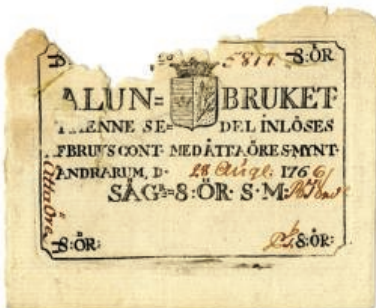 No 5811 8:ÖR
ALUN= BRUKET
DENNE SE= DEL INLÖSES
AF BRUKS CONT MED ÅTTA ÖRES MYNT
ANDRARUM, D. 28 Augt. 1766
SÄG=8:ÖR S:M:
8:ÖR: 8:ÖR:
Åtta Öre